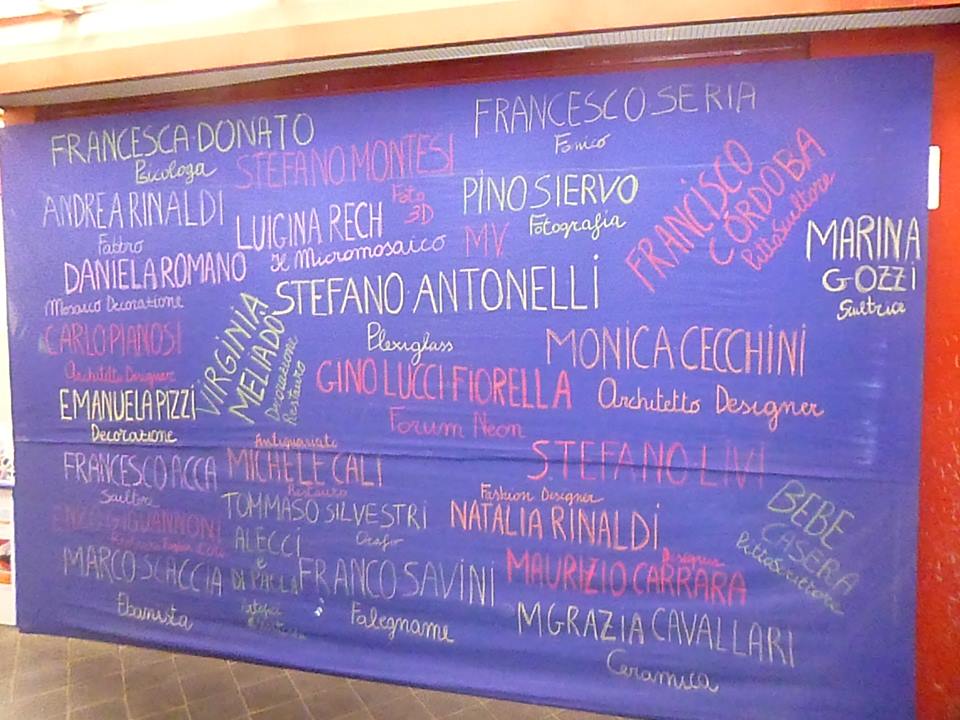 FRANCESCO SERIA
Fonico
FRANCESCA DONATO
Psicologa
STEFANO MONTESI
Foto
3D
ANDREA RINALDI
Fabbro
LUIGINA RECH
Il Micromosaico
PINO SIERVO
Fotografia
MV
FRANCISCO
CÓRDOBA
PittoScultore
MARINA
GOZZI
Scultrice
DANIELA ROMANO
Mosaico Decorazione
STEFANO ANTONELLI
Plexiglass
CARLO PIANOSI
Architetto Designer
VIRGINIA
MELIADÒ
Decorazione
Restauro
MONICA CECCHINI
Architetto Designer
GINO LUCCI FIORELLA
Forum Neon
EMANUELA PIZZI
Decorazione
Antiquariato
MICHELE CALI
Restauro
STEFANO LIVI
FRANCESCO ACCA
Scultore
Fashion Designer
NATALIA RINALDI
TOMMASO SILVESTRI
Orafo
BEBE
CASERA
PittoScultore
ALECCI
e
DI PAOLA
Designer
MAURIZIO CARRARA
MARCO SCACCIA
Ebanista
FRANCO SAVINI
Falegname
MGRAZIA CAVALLARI
Ceramica